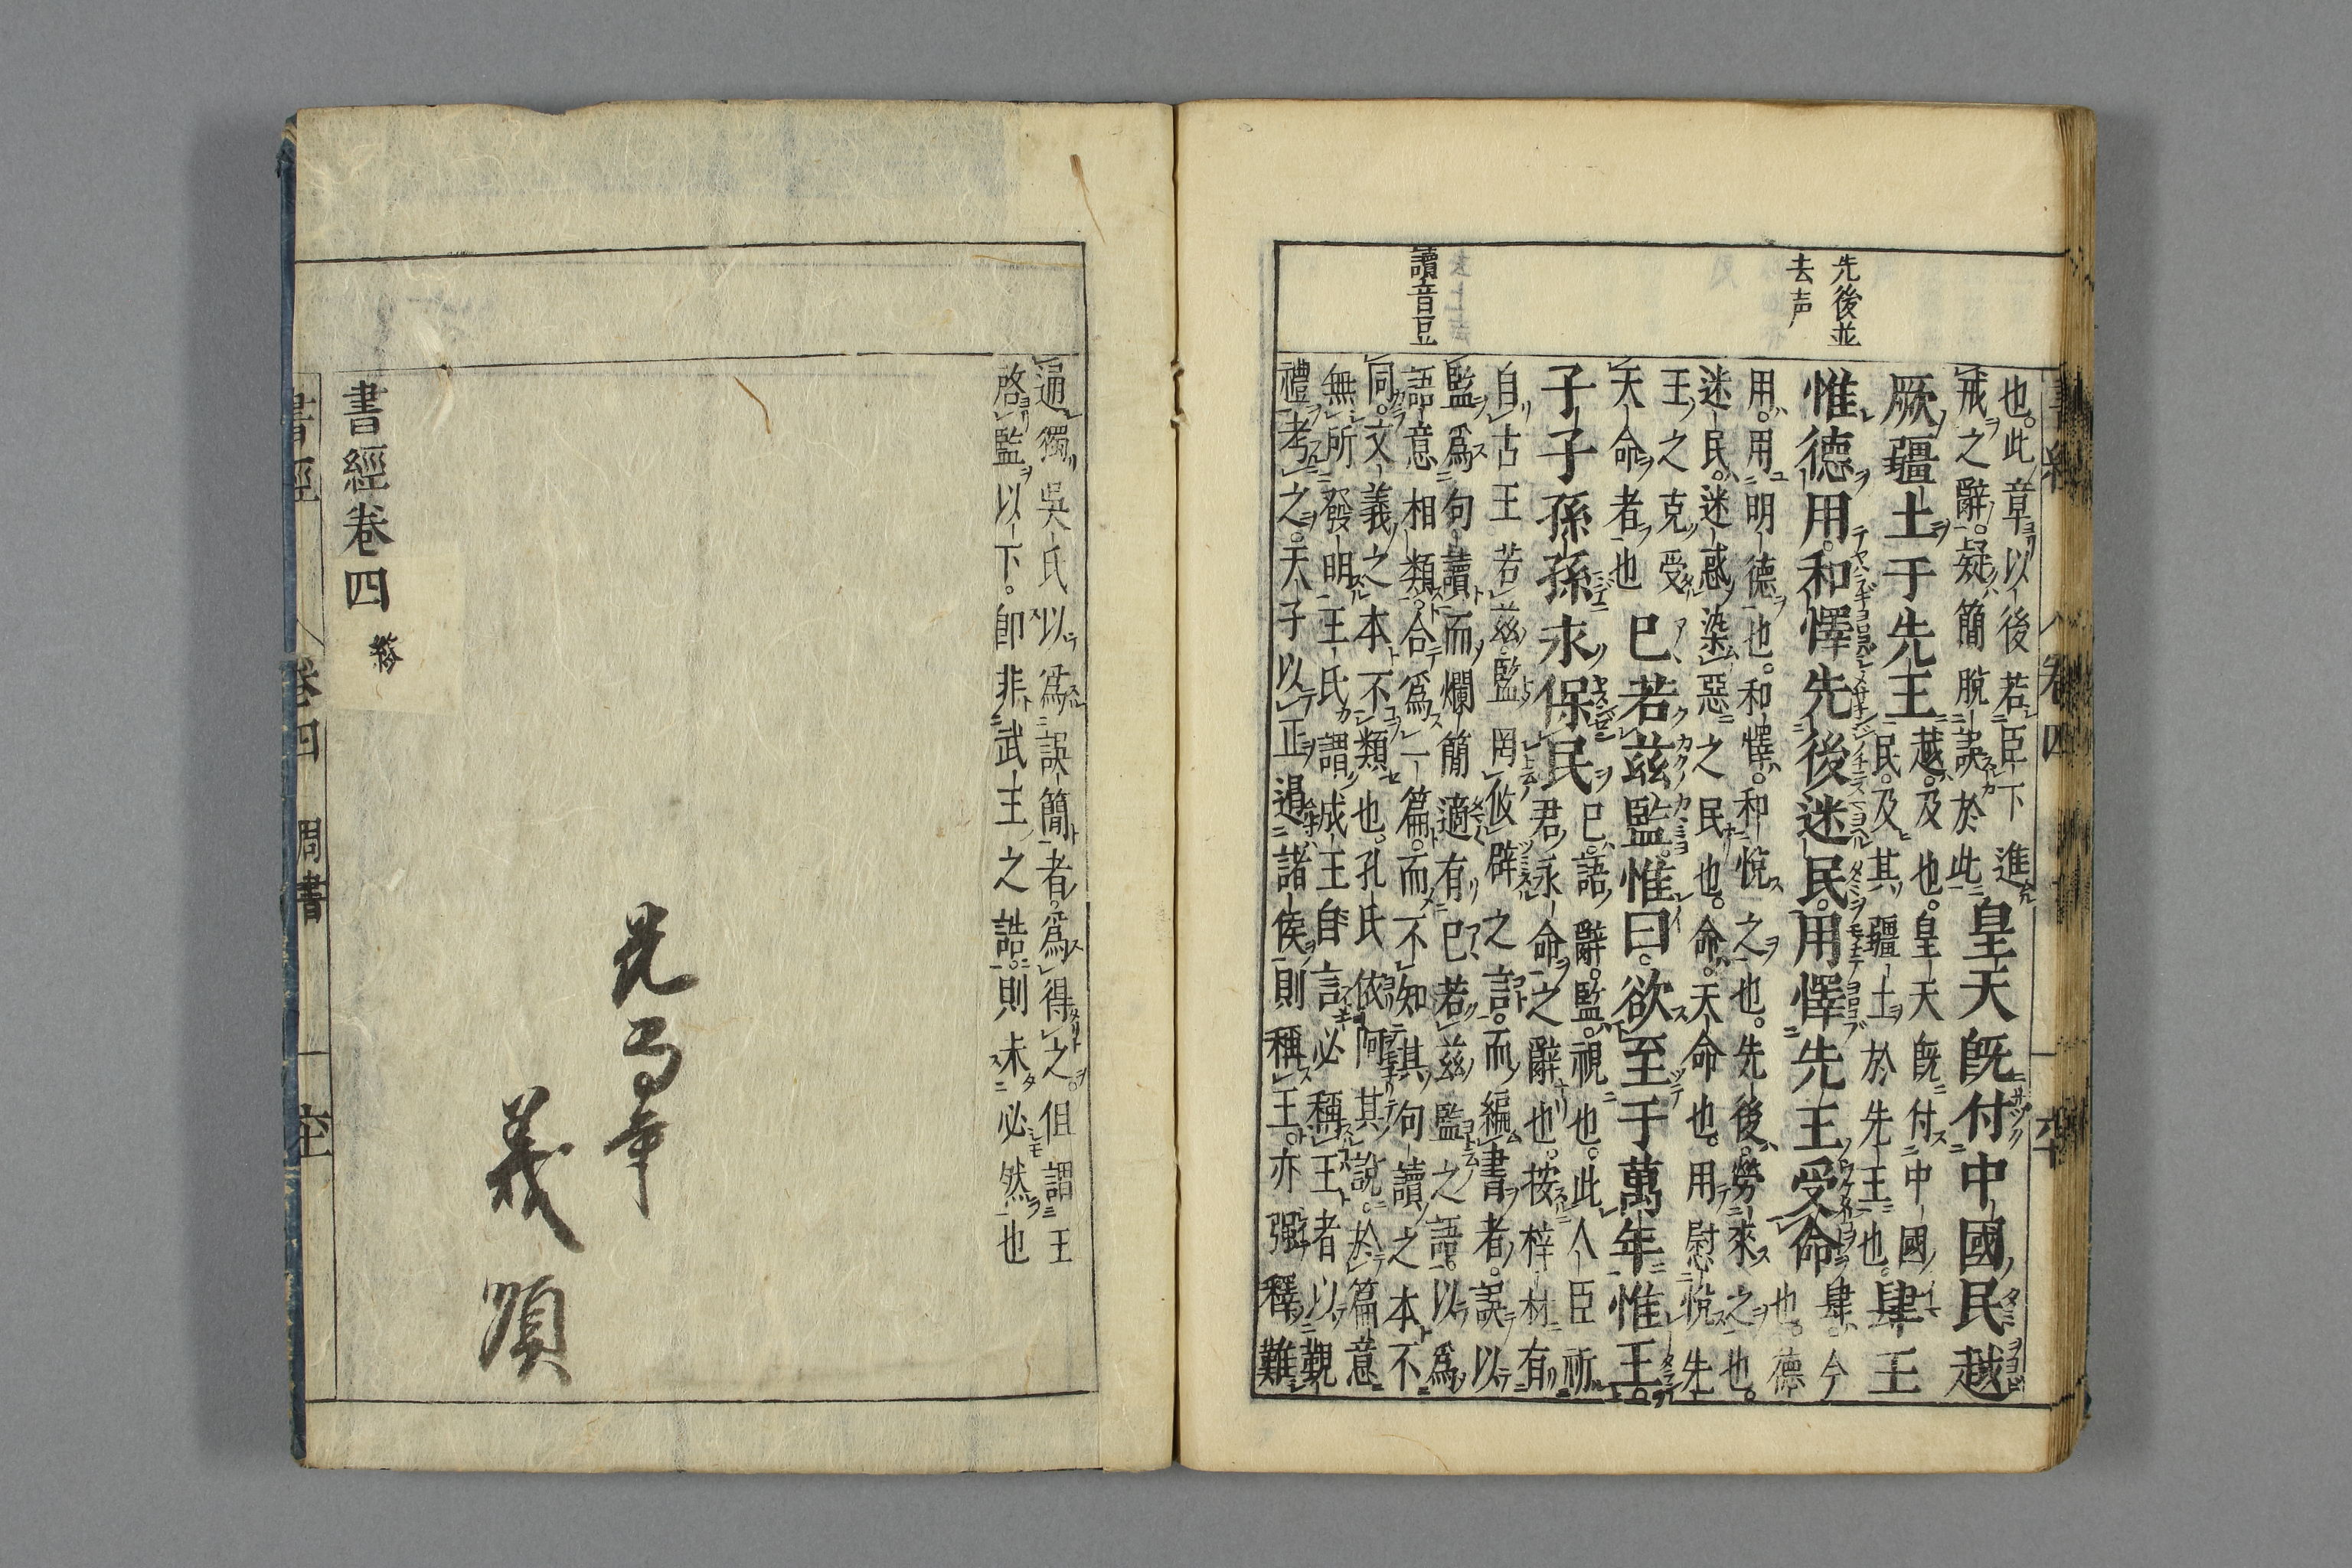 書經 卷四 六十
先後並
去声
讀音豆
也。此章以後若臣下進
戒之辭。疑簡脫誤於此
皇天既付中國民越
厥疆土于先王
越。及也。皇天既付中國
民。及其疆土於先王也。
肆王
惟德用。和懌先後迷民。用懌先王受命
肆。今
也。德
用。用明德也。和懌。和悅之也。先後。勞來之也。
迷民。迷惑染惡之民也。命。天命也。用慰悅先
王之克受
天命者也
已若茲監。惟曰。欲至于萬年。惟王。
子子孫孫永保民
已。語辭。監。視也。此人臣祈
君永命之辭也。按梓材有
自古王若茲監罔攸辟之言。而編書者。誤以
監爲句讀而爛簡適有已若茲監之語。以爲
語意相類。合爲一篇。而不知其句讀之本不
同。文義之本不類也。孔氏依阿其說。於篇意
無所發明王氏謂成王自言必稱王者以覲
禮考之。天子以正遏諸侯則稱王。亦强釋難
通獨吳氏以爲誤簡者。爲得之。但謂王
啓監以下。即非武王之誥。則未必然也
義
書經卷四 終
書經 卷四 周書